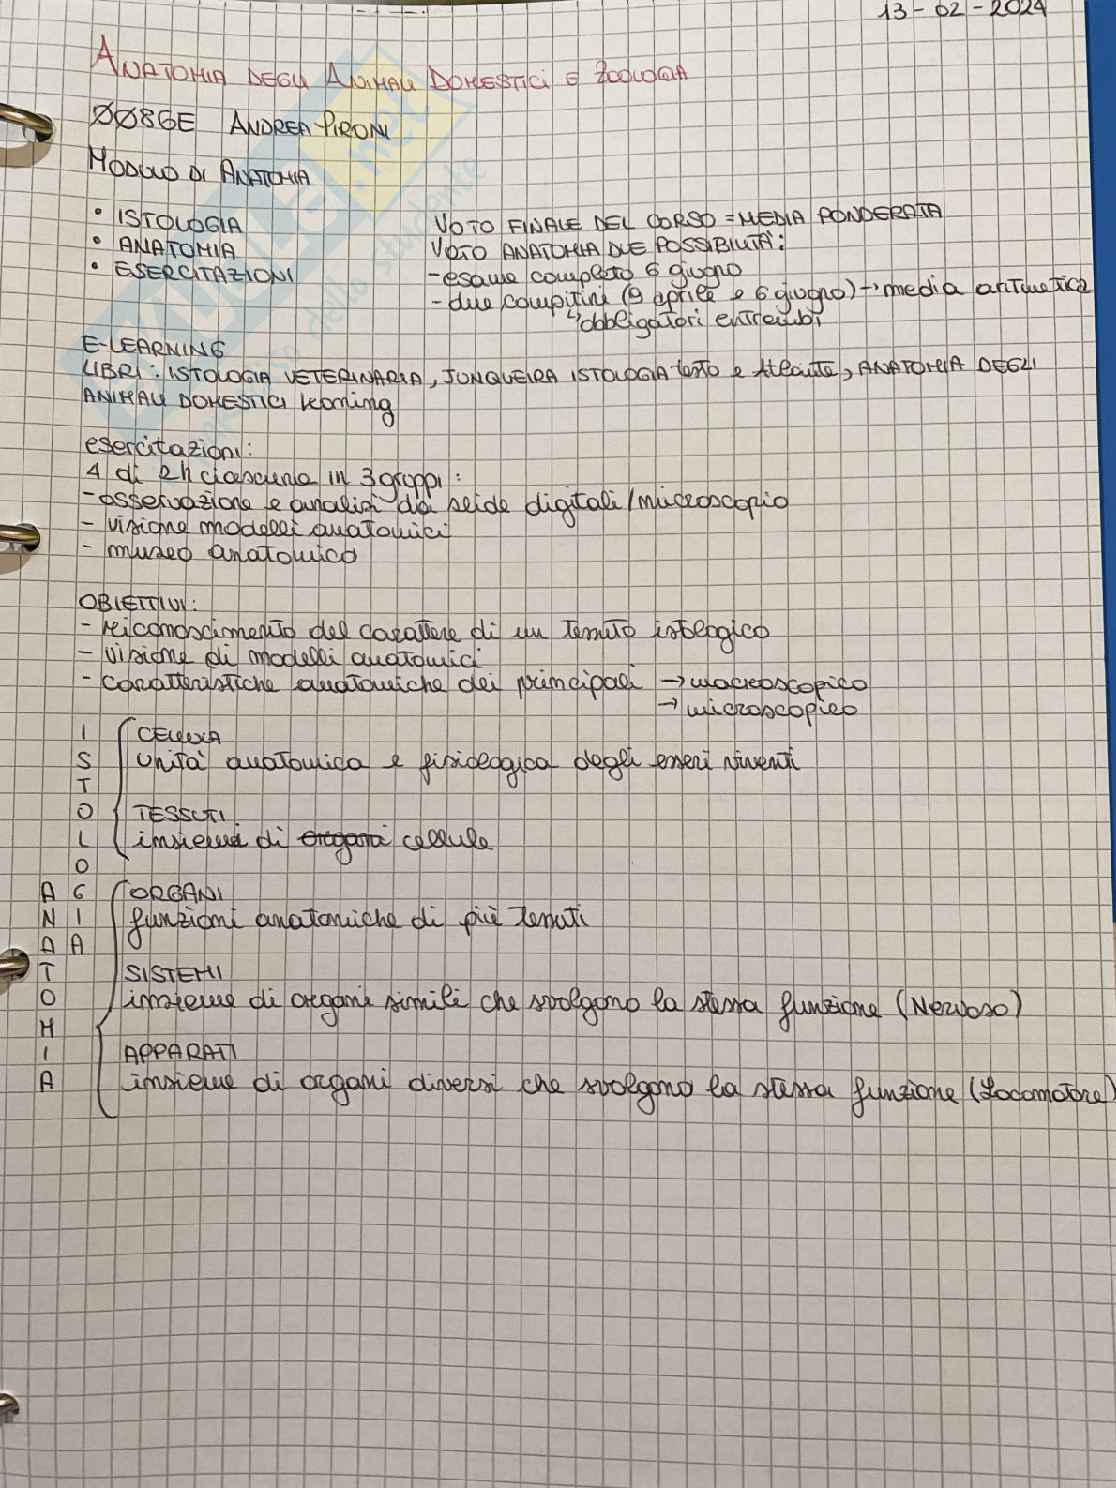 13-02-2024
ANATOMIA DEGLI ANIMALI DOMESTICI E ZOOLOGIA
ØØ86E ANDREA PIRONI
MODULO DI ANATOMIA
• ISTOLOGIA
• ANATOMIA
• ESERCITAZIONI
VOTO FINALE DEL CORSO = MEDIA PONDERATA
VOTO ANATOMIA DUE POSSIBILITÀ:
- esame completo 6 giugno
- due compitini (9 aprile e 6 giugno) → media aritmetica
↳ obbligatori entrambi
E-LEARNING
LIBRI: ISTOLOGIA VETERINARIA, JUNQUEIRA ISTOLOGIA testo e atlante, ANATOMIA DEGLI
ANIMALI DOMESTICI Koning
esercitazioni:
4 di 2h ciascuna in 3 gruppi:
- osservazione e analisi da slide digitali/microscopio
- visione modelli anatomici
- museo anatomico
OBIETTIVI:
- riconoscimento del carattere di un tessuto istologico
- visione di modelli anatomici
- caratteristiche anatomiche dei principali → macroscopico
→ microscopico
ISTOLOGIA
CELLULA
unità anatomica e fisiologica degli esseri viventi
TESSUTI
insieme di organi cellule
ANATOMIA
ORGANI
funzioni anatomiche di più tessuti
SISTEMI
insieme di organi simili che svolgono la stessa funzione (Nervoso)
APPARATI
insieme di organi diversi che svolgono la stessa funzione (Locomotore)